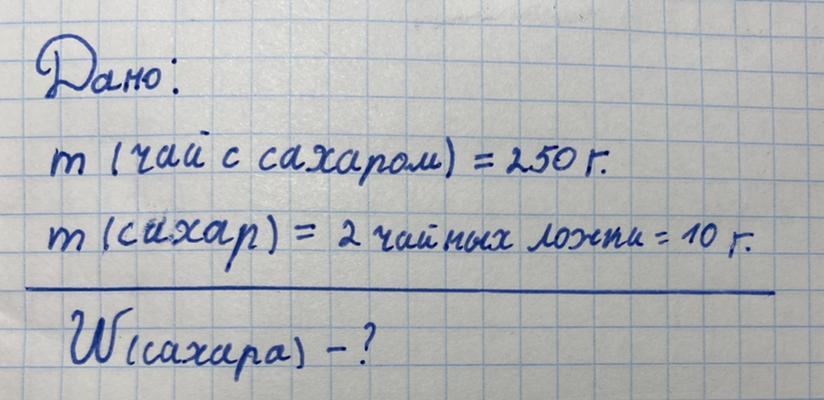 Дано:
m (чай с сахаром) = 250 г.
m (сахар) = 2 чайных ложки = 10 г.
W (сахара) - ?